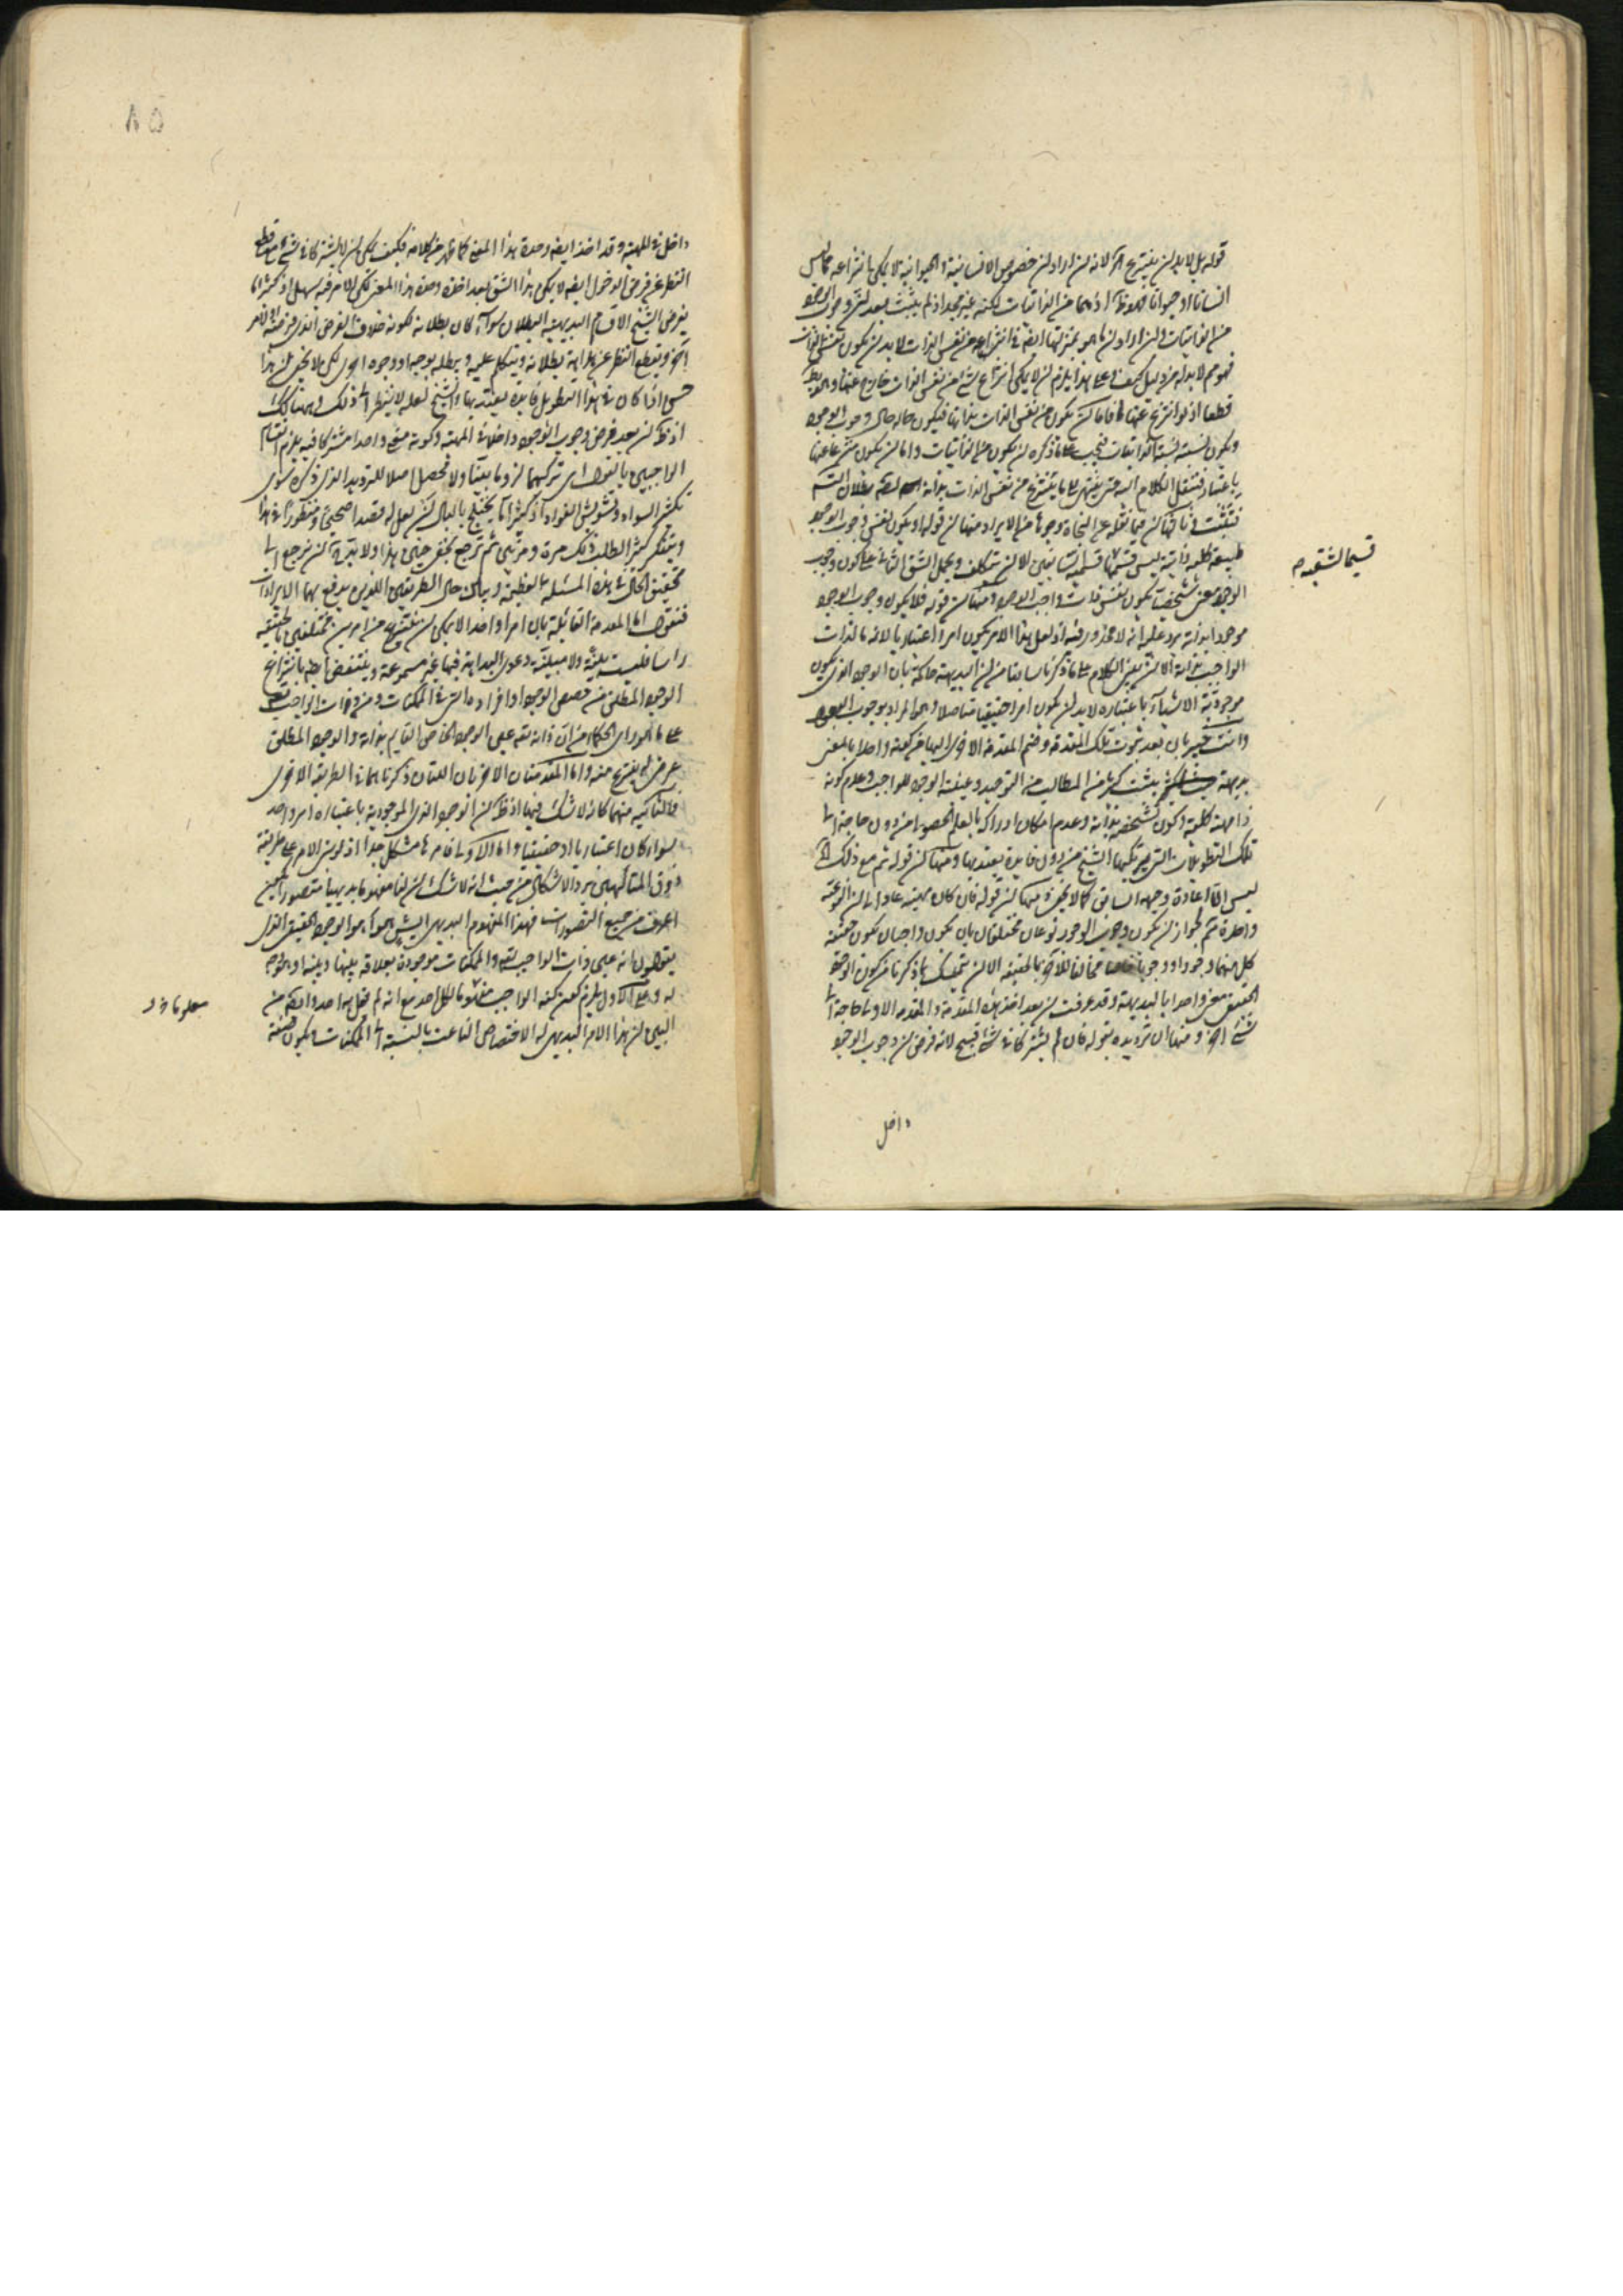 قوله بل لا بد ان ينتزع آه لانه ان اراد ان خصوص الانسانية والحيوانية لا يمكن انتزاعه مما ليس
انسانا او حيوانا فهو ظ اذ هما من الذاتيات لكنه غير مجد اذ لم يثبت بعد ان وجوب الوجود
من الذاتيات وان اراد ان ما هو بمنزلتها ايضا في انتزاعه عن نفس الذات لا بد ان يكون نفس الذات
فهو مم لا بد له من دليل كيف وعلى هذا يلزم ان لا يمكن انتزاع شيء من نفس الذات خارج عنها وهو بط
قطعا اذ لو انتزع عنها فاما ان يكون من نفس الذات بذاتها فيكون حاله حال وجوب الوجود
ويكون نسبته نسبة الذاتيات فيجب على ما ذكره ان يكون من الذاتيات واما ان يكون منتزعا عنها
باعتبار فننقل الكلام اليه حتى ينتهي الى ما ينتزع من نفس الذات بذاته
فتثبت ومنها ان فيما نقله عن النجاة وجوها من الايراد منها ان قوله او يكون لنفس وجوب الوجود
طبيعة كلية ذاتية ليس قسيما الا ان يتكلف ويحمل الشق الثاني على كون وجوب
الوجود معنى شخصيا يكون نفس ذات واجب الوجود ومنها ان قوله فلا يكون وجوب الوجود
موجودا بذاته يرد عليه انه لا محذور فيه اذ لعل هذا الامر يكون امرا اعتباريا لانه بالذات
الواجب بذاته الا ان يبنى الكلام على ما ذكرنا سابقا من ان البديهة حاكمة بان الوجود الذي يكون
موجودية الاشياء باعتباره لا بد ان يكون امرا حقيقيا متاصلا وهو المراد بوجوب الوجود
وانت خبير بان بعد ثبوت تلك المقدمة وضم المقدمة الاخرى اليها من كونه واحدا بالمعنى
بديهة يثبت كثير من المطالب من التوحيد وعينية الوجود للواجب وعدم كونه
ذا مهية كلية وكون تشخصه بذاته وعدم امكان ادراكه بالعلم الحصولي من دون حاجة الى
تلك التطويلات التي يرتكبها الشيخ من دون فايدة يعتد بها ومنها ان قوله ثم مع ذلك آه
ليس الا اعادة وجهه السابق كما لا يخفى ومنها ان قوله فان كان مهيته عاد الى ان النوعية
واحدة مم لجواز ان يكون وجوب الوجود نوعان مختلفان بان يكون واجبان يكون حقيقة
كل منهما وجودا ووجوبا خاصا مخالفا للآخر بالحقيقة الا ان يتمسك بما ذكرنا من كون الوجود
الحقيقي معنى واحدا بالبديهة وقد عرفت ان بعد اخذ هذه المقدمة والمقدمة الاولى لا حاجة الى
شيء اخر ومنها ان ترديده بقوله فان لم يشتركا في شيء قبيح لانه فرض ان وجوب الوجود
قسيما لشقيه
داخل
٨٥
داخل في المهية وقد اخذ ايضا وحدة هذا المعنى كما ظهر من كلامه فكيف يمكن ان لا يشتركا في شيء مع قطع
النظر عن فرض الدخول ايضا لا يمكن هذا الشق بعد اخذه وحدة هذا المعنى لكن الامر فيه سهل اذ كثيرا ما
يفرض الشيخ الاقسام البديهية البطلان سواء كان بطلانه لكونه خلاف الفرض الذي فرضه او لامر
آخر ويقطع النظر عن بداهة بطلانه ويتكلم عليه ويبطله بوجه او وجوه اخرى لكن لا يخفى ان هذا
حسن اذا كان في هذا التطويل فايدة يعتد بها والشيخ لعله لا ينظر الى ذلك وههنا كذلك
اذ ظ ان بعد فرض وجوب الوجود داخلا في المهية وكونه معنى واحدا مشتركا فيه يلزم انقسام
الواجبين بالقول اي تركبهما لزوما بينا ولا محصل اصلا للترديد الذي ذكره سوى
تكثير السواد وتشويش الفؤاد اذ كثيرا ما يختلج بالبال ان لعل له مقصدا صحيحا ومنظورا في هذا
ويتفكر كثيرا لطلب ذلك مرة ومرتين ثم ترجع بخفي حنين هذا ولا بد ان نرجع الى
تحقيق الحال في هذه المسئلة العظيمة وبيان حال الطريقين اللذين يدفع بهما الايرادات
فنقول اما المقدمة القائلة بان امرا واحدا لا يمكن ان ينتزع من امرين مختلفين بالحقيقة
راسا فليست بينة ولا مبينة ودعوى البداهة فيها غير مسموعة وينتقض ايضا بانتزاع
الوجود المطلق من حصص الوجود او افراده التي في الممكنات ومن ذات الواجب تعالى
على ما هو راي الحكماء من ان ذاته تعالى عين الوجود الخاص القايم بذاته والوجود المطلق
عرضي له ينتزع منه واما المقدمتان الاخريان اللتان ذكرناهما في الطريقة الاخرى
فالثانية منهما كانه لا شك فيها اذ ظ ان الوجود الذي الموجودية باعتباره امر واحد
سواء كان اعتباريا او حقيقيا واما الاولى فامرها مشكل جدا اذ لو بني الامر على طريقة
ذوق المتالهين يرد الاشكال من حيث انه لا شك ان لنا مفهوما بديهيا متصورا لنا
اعرف من جميع التصورات فهذا المفهوم البديهي ايش هو اهو الوجود الحقيقي الذي
يقولون انه عين ذات الواجب تعالى والممكنات موجودة بعلاقة بينها وبينه او هو وجه
له وعلى الاول يلزم كون كنه الواجب معقولا لكل احد مع انه لم يقل به احد وايضا من
البين ان هذا الامر البديهي له الاختصاص الناعت بالنسبة الى الممكنات ويكون صفة